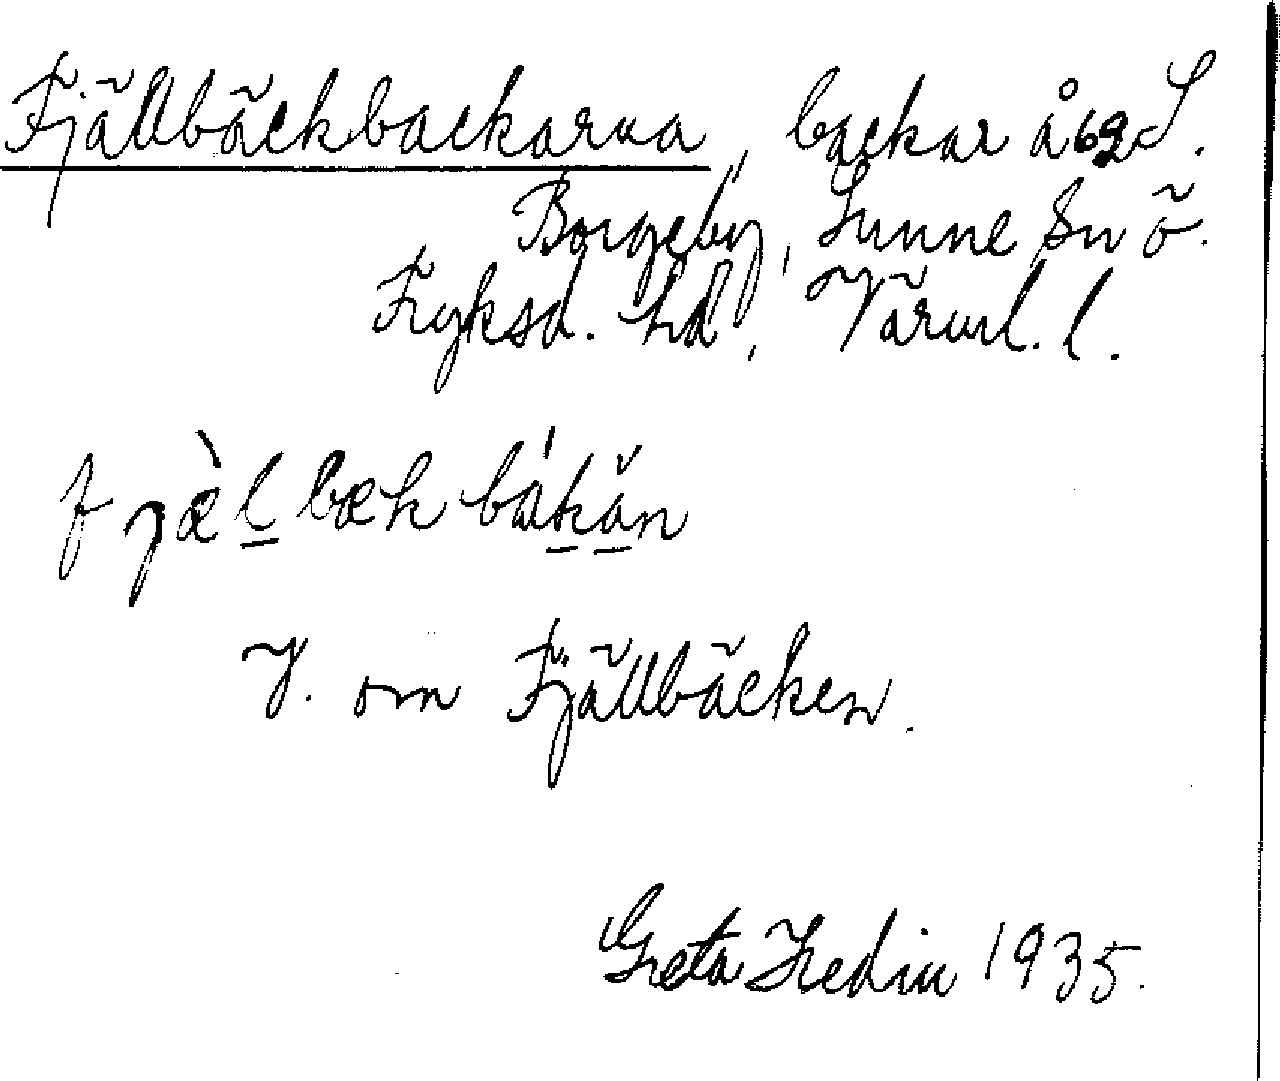 Fjällbäckbackarna, backar å bg S.
Borgeby, Sunne sn ö.
Fryksd. hd, Värml. l.
fjæ̀l bæk bákăn
V. om Fjällbäcken.
Greta Hedin 1935.